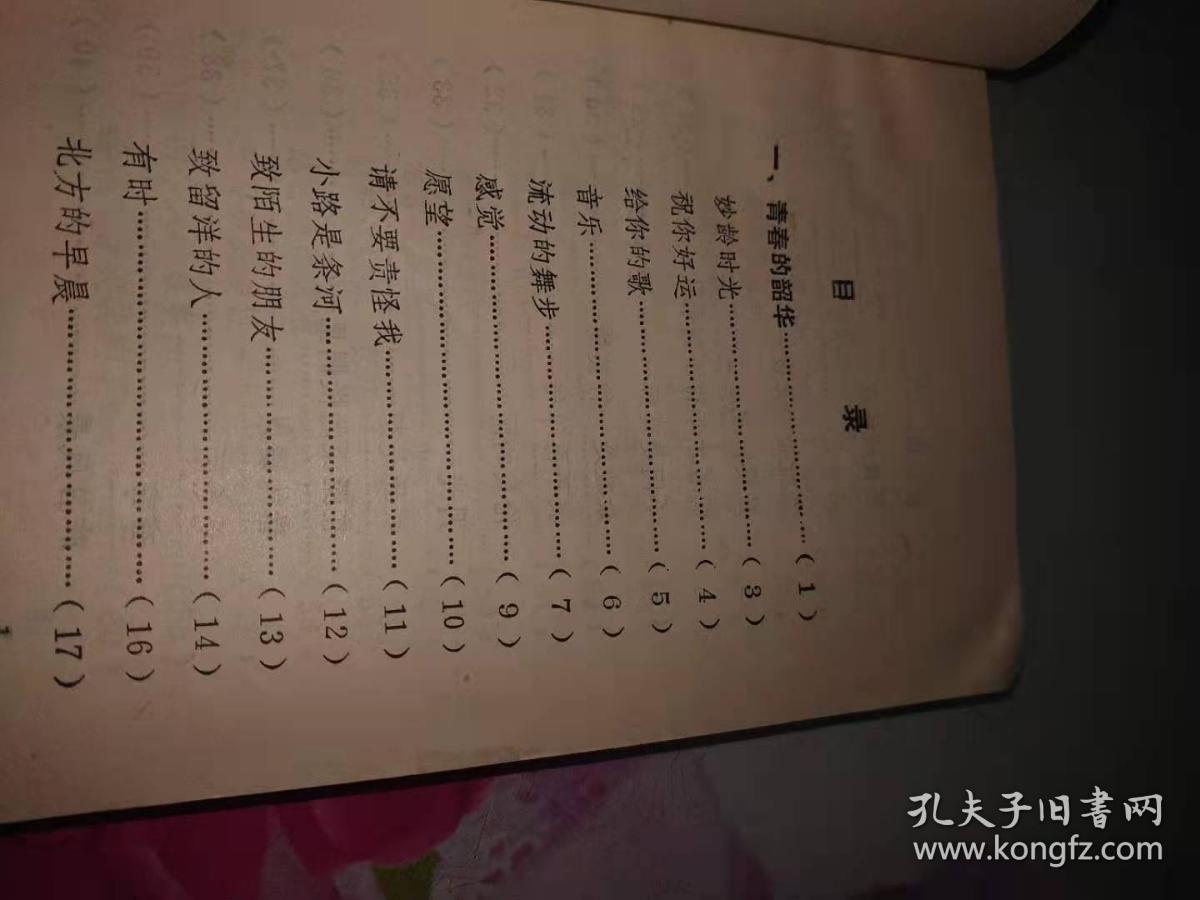 目 录
一、青春的韶华……………………(1)
妙龄时光……………………(3)
祝你好运……………………(4)
给你的歌……………………(5)
音乐……………………(6)
流动的舞步……………………(7)
感觉……………………(9)
愿望……………………(10)
请不要责怪我……………………(11)
小路是条河……………………(12)
致陌生的朋友……………………(13)
致留洋的人……………………(14)
有时……………………(16)
北方的早晨……………………(17)
1
孔夫子旧書网
www.kongfz.com